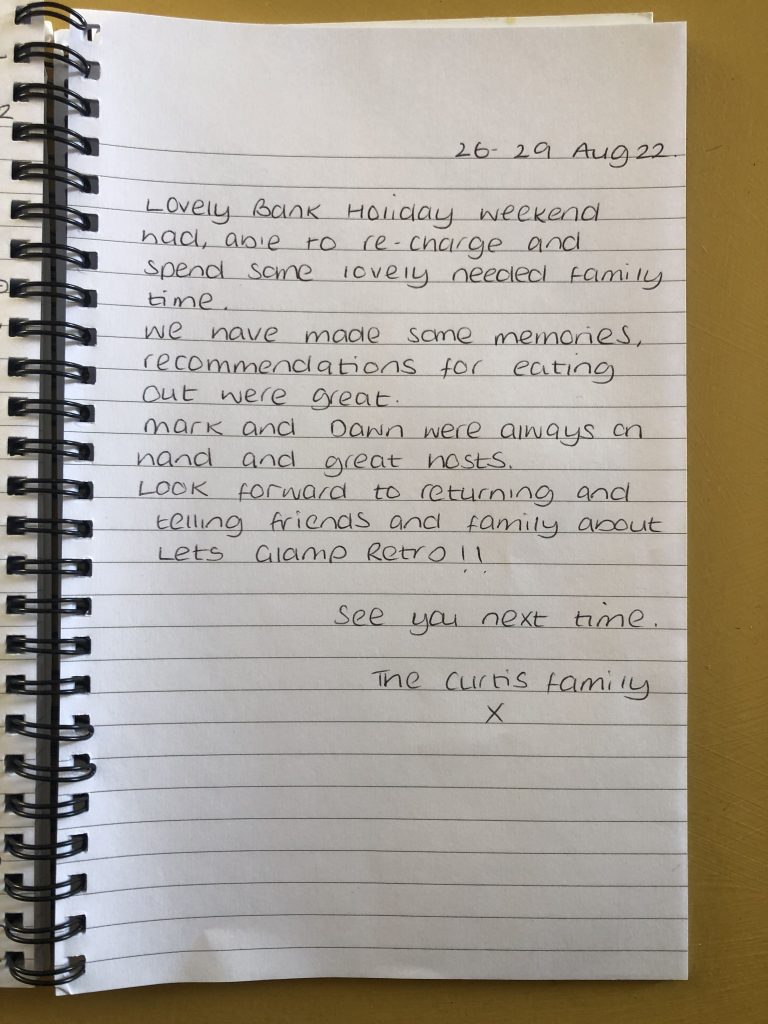 26-29 Aug 22.
Lovely Bank Holiday weekend
had, able to re-charge and
spend some lovely needed family
time.
We have made some memories,
recommendations for eating
out were great.
Mark and Dawn were always on
hand and great hosts.
Look forward to returning and
telling friends and family about
Lets Glamp Retro!!
See you next time.
The Curtis family
X